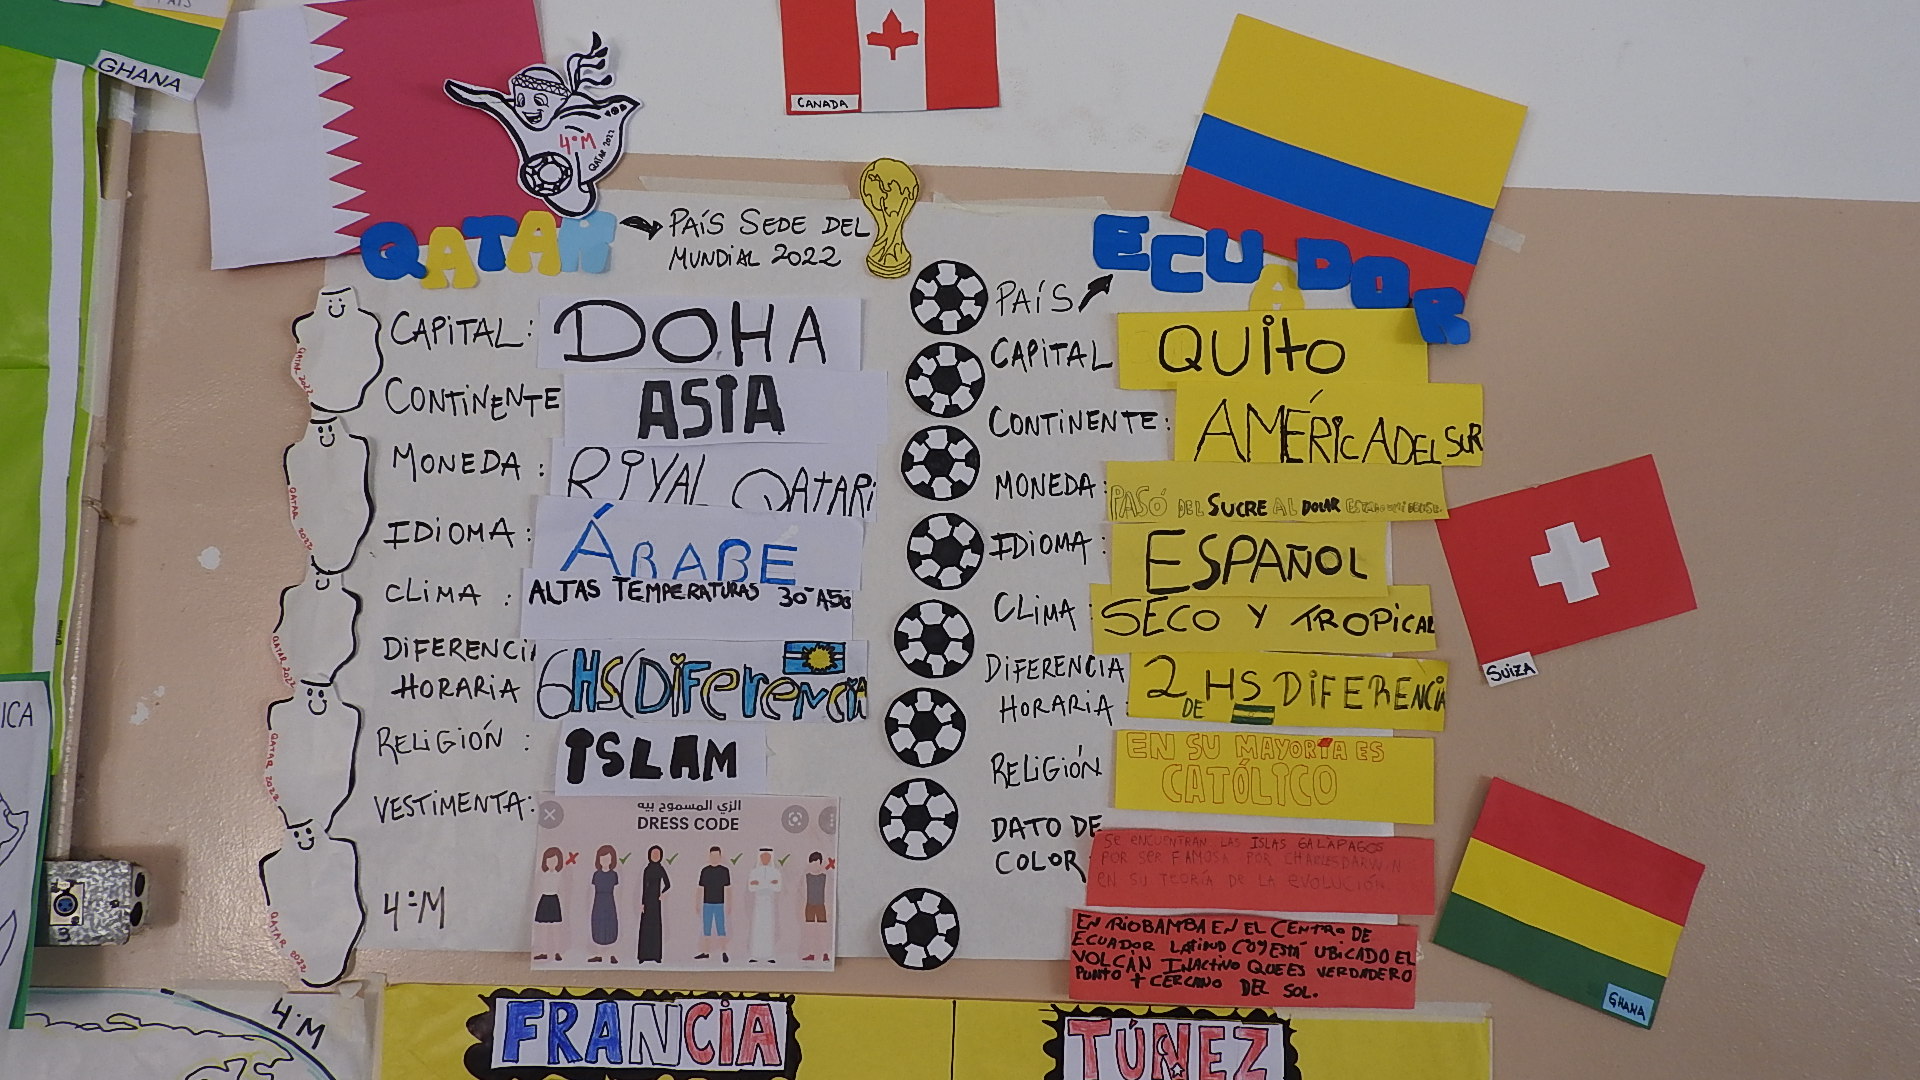 PAÍS
GHANA
CANADA
4°M
QATAR 2022
QATAR
PAÍS SEDE DEL
MUNDIAL 2022
CAPITAL: DOHA
CONTINENTE ASIA
MONEDA: RIYAL QATARI
IDIOMA: ÁRABE
CLIMA: ALTAS TEMPERATURAS 30° A 50°
DIFERENCIA
HORARIA 6HS DIFERENCIA
RELIGIÓN: ISLAM
VESTIMENTA:
الزي المسموح بيه
DRESS CODE
4°M
QATAR 2022
QATAR 2022
QATAR 2022
QATAR 2022
QATAR 2022
ECUADOR
PAÍS
CAPITAL QUITO
CONTINENTE: AMÉRICA DEL SUR
MONEDA: PASÓ DEL SUCRE AL DOLAR ESTADOUNIDENSE
IDIOMA: ESPAÑOL
CLIMA: SECO Y TROPICAL
DIFERENCIA
HORARIA: 2 HS DE DIFERENCIA
RELIGIÓN EN SU MAYORÍA ES
CATÓLICO
DATO DE
COLOR
SE ENCUENTRAN LAS ISLAS GALÁPAGOS
POR SER FAMOSA POR CHARLES DARWIN
EN SU TEORÍA DE LA EVOLUCIÓN.
EN RIOBAMBA EN EL CENTRO DE
ECUADOR ESTÁ UBICADO EL
VOLCÁN INACTIVO QUE ES VERDADERO
PUNTO + CERCANO DEL SOL.
SUIZA
GHANA
ICA
4°M
FRANCIA
TÚNEZ